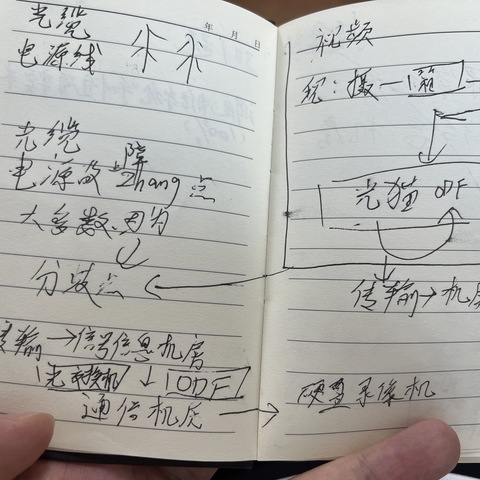 年 月 日
光缆
电源线
光缆
电源故障zhang点
大多数因为
分歧点
传输→信号信息机房
光交换机 ↓ ODF
通信机房 →
视频
现:摄—箱—
光猫 ODF
传输→机房
硬盘录像机